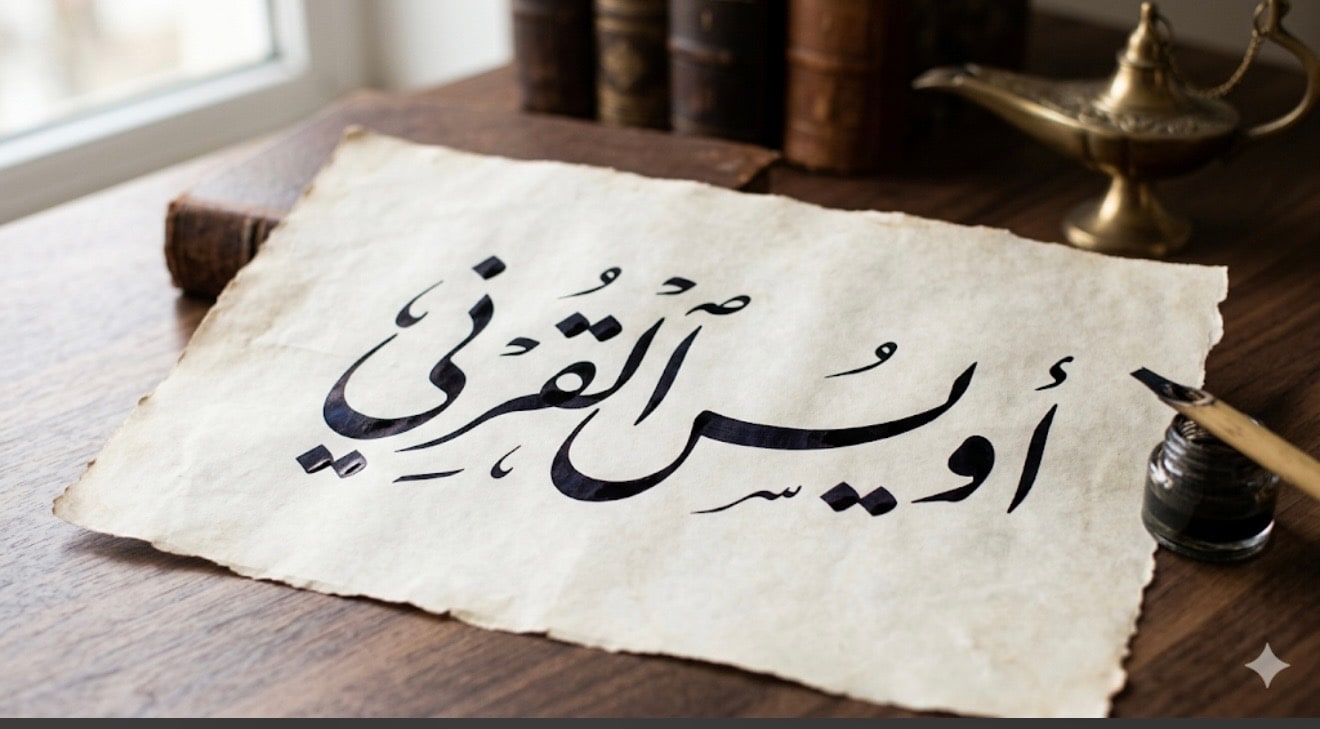 أويس القرني